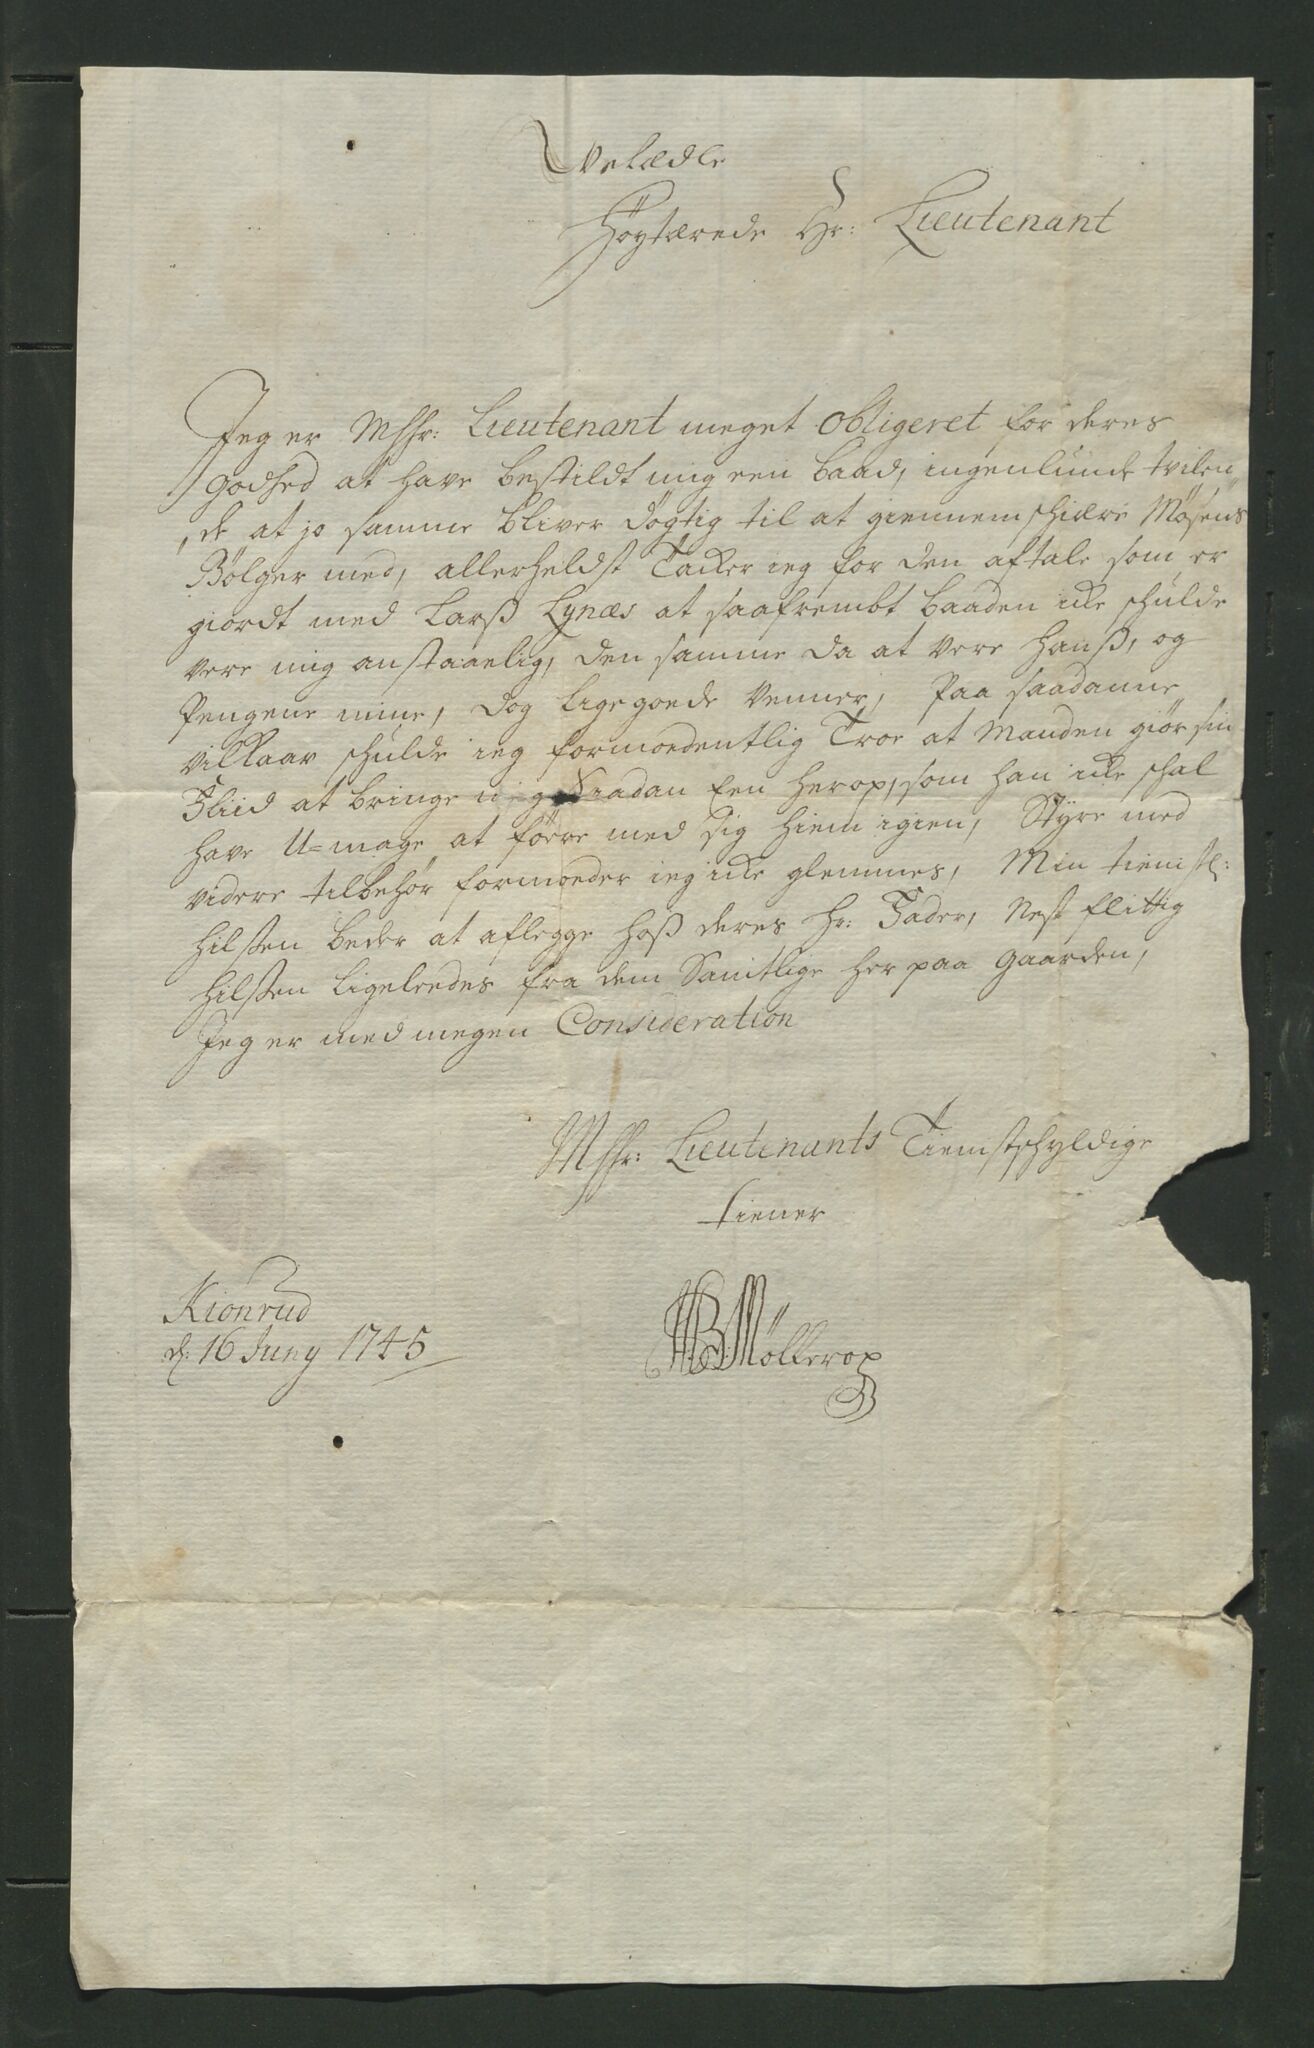 Velædle
Høytærede Hr: Lieutenant
Jeg er MHHr: Lieutenant meget obligeret for deres
godhed at have bestildt mig een baad, ingenlunde tvilen„
„de at jo samme bliver dögtig til at giennemschiære Møsens
Bölger med, allerheldst Tacker ieg for den aftale som er
giordt med Larß Lynæs at saafrembt baaden icke schulde
vere mig anstaaelig, den samme da at vere hanß, og
Pengene mine, dog lige goede Venner, Paa saadanne
vilkaar schulde ieg formoedentlig Troe at Manden giør sin
Fliid at bringe mig Saadan Een herop, som han icke schal
have U=mage at føere med sig hiem igien, Styre med
videre tilbehör formoeder ieg icke glemmes, Min tienstl:
hilßen beder at aflegge hoß deres Hr: Fader, Nest flittig
hilßen ligeleedes fra dem Samtlige her paa gaarden,
Jeg er med megen Consideration
MHHr: Lieutenants Tienstschyldige
tiener
Kionrud
d: 16 Juny 1745
HB Möllerop